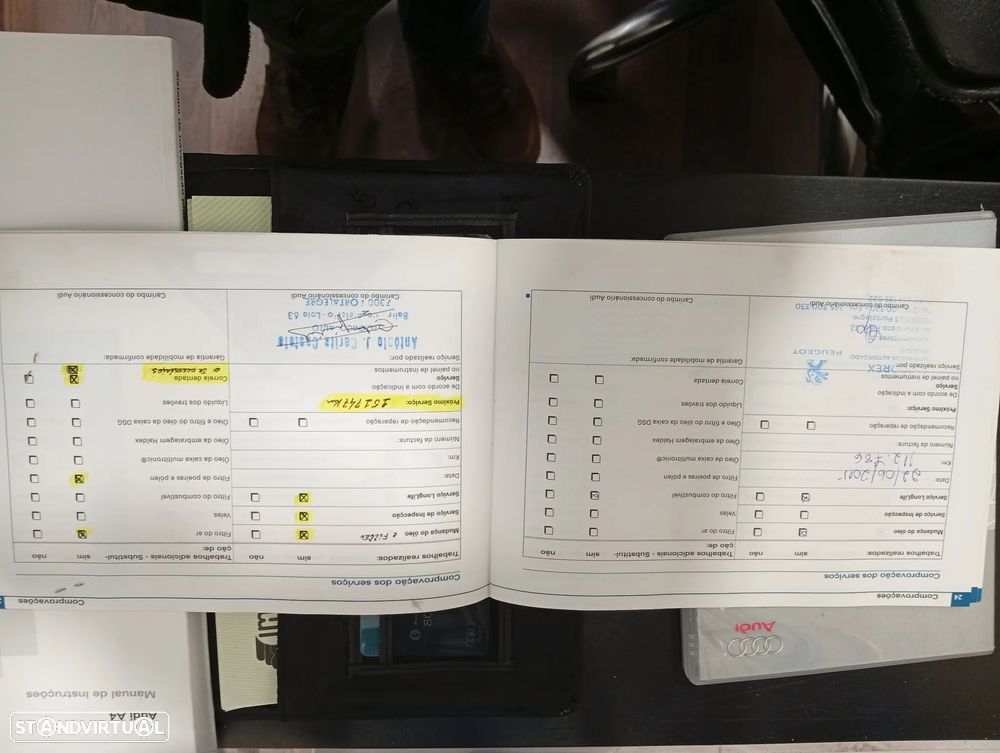 24 Comprovações
Comprovação dos serviços
Trabalhos realizados: sim não
Mudança do óleo
Serviço de Inspecção
Serviço LongLife
Data: 22/06/2011
Km: 112.786
Número da factura:
Recomendação de reparação
Próximo Serviço:
De acordo com a indicação
Serviço
no painel de instrumentos
Serviço realizado por:
PEUGEOT
Carimbo do concessionário Audi
Trabalhos adicionais - Substitui-
ção de: sim não
Filtro do ar
Velas
Filtro do combustível
Filtro de poeiras e pólen
Óleo da caixa multitronic®
Óleo da embraiagem Haldex
Óleo e filtro do óleo da caixa DSG
Líquido dos travões
Correia dentada
Garantia de mobilidade confirmada:
Carimbo do concessionário Audi
Comprovações
Comprovação dos serviços
Trabalhos realizados: sim não
Mudança do óleo e Filtro
Serviço de Inspecção
Serviço LongLife
Data:
Km:
Número da factura:
Recomendação de reparação
Próximo Serviço: 151747 Km
De acordo com a indicação
Serviço
no painel de instrumentos
Serviço realizado por:
7300 PORTALEGRE
Carimbo do concessionário Audi
Trabalhos adicionais - Substitui-
ção de: sim não
Filtro do ar
Velas
Filtro do combustível
Filtro de poeiras e pólen
Óleo da caixa multitronic®
Óleo da embraiagem Haldex
Óleo e filtro do óleo da caixa DSG
Líquido dos travões
Correia dentada
Garantia de mobilidade confirmada:
Carimbo do concessionário Audi
Audi
Audi A4
Manual de Instruções
Sistema de navegação
STANDVIRTUAL